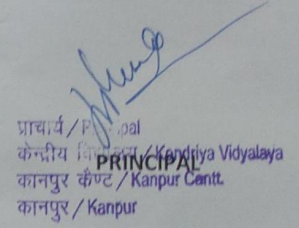 प्राचार्य / Principal
केन्द्रीय विद्यालय / Kendriya Vidyalaya
PRINCIPAL
कानपुर कैण्ट / Kanpur Cantt.
कानपुर / Kanpur